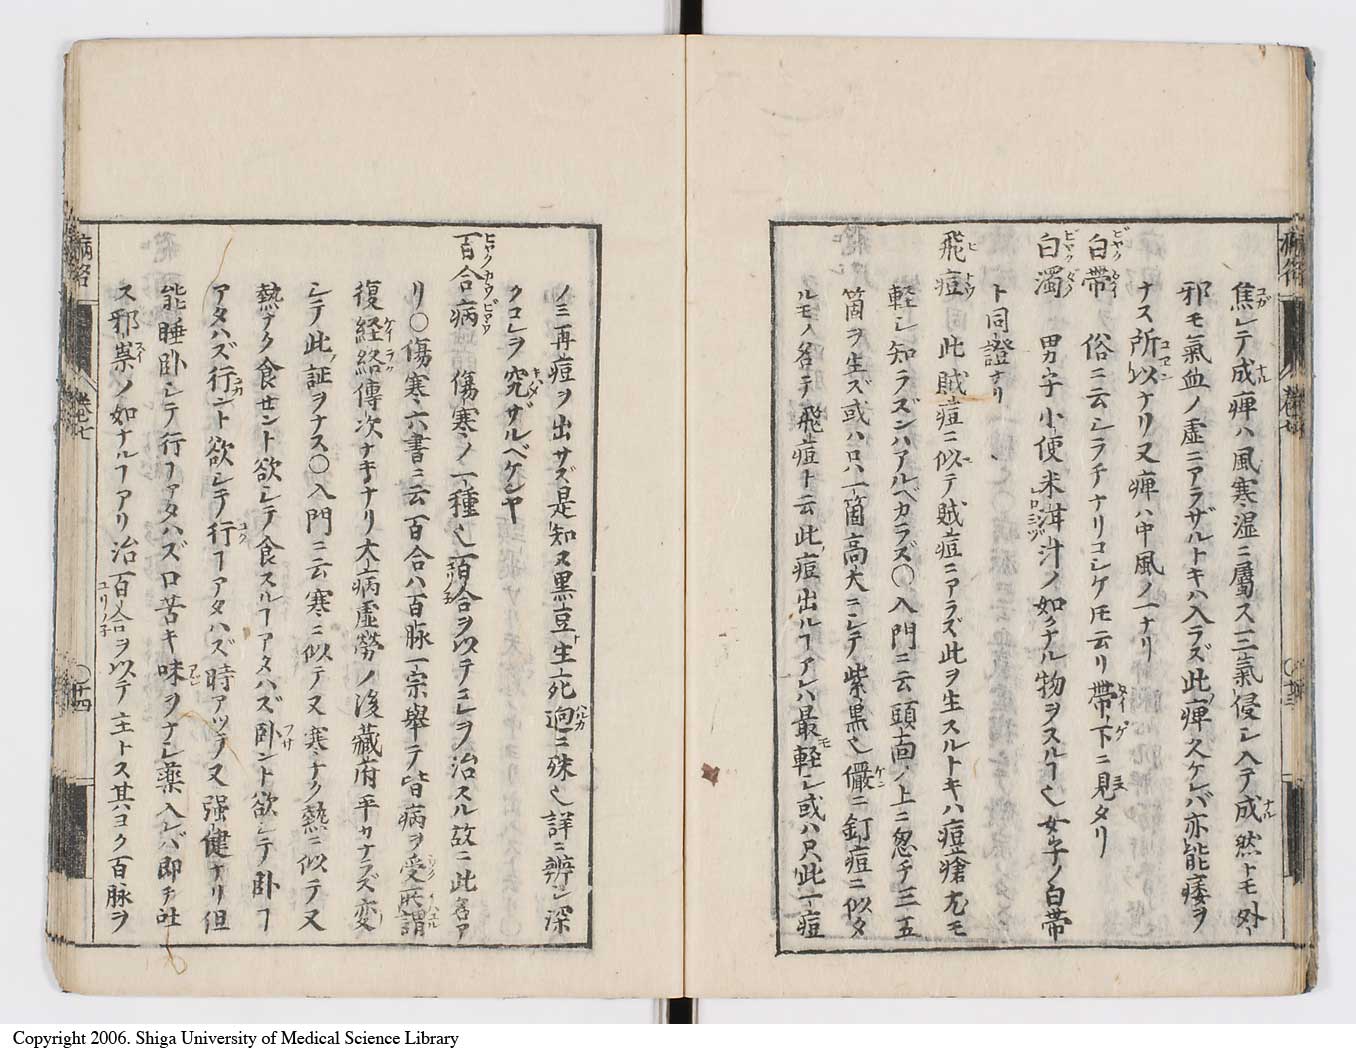 焦シテ成痺ハ風寒湿ニ屬ス三氣侵シ入テ成然トモ外
邪モ氣血ノ虚ニアラザルトキハ入ラズ此痺久ケレバ亦能痿ヲ
ナス所以ナリ又痺ハ中風ノ一ナリ
白帯 俗ニ云シラチナリコシケ𪜈云リ帯下ニ見タリ
白濁 男子小便米泔汁ノ如クナル物ヲスルヿ也女子ノ白帯
ト同證ナリ
飛痘 此賊痘ニ似テ賊痘ニアラズ此ヲ生スルトキハ痘瘡尤モ
軽シ知ラズンハアルベカラズ〇入門ニ云頭面ノ上ニ忽チ三五
箇ヲ生ズ或ハ只一箇高大ニシテ紫黒也儼ニ釘痘ニ似タ
ルモノ名テ飛痘ト云此痘出ルヿアレハ最軽シ或ハ只此一痘
ノミ再痘ヲ出サズ是知ヌ黒豆生死逈ニ殊也詳ニ辨シ深
クコレヲ究ザルベケンヤ
百合病 傷寒ノ一種也百合ヲ以テコレヲ治スル故ニ此名ア
リ〇傷寒六書ニ云百合ハ百脉一宗舉テ皆病ヲ受所謂
復経絡傳次ナキナリ大病虚勞ノ後藏府平カナラズ変
シテ此証ヲナス〇入門ニ云寒ニ似テ又寒ナク熱ニ似テ又
熱ナク食セント欲シテ食スルヿアタハズ卧ント欲シテ卧ヿ
アタハズ行ント欲シテ行ヿアタハズ時アツテ又强健ナリ但
能睡卧シテ行ヿアタハズ口苦キ味ヲナシ薬入レバ即チ吐
ス邪祟ノ如ナルヿアリ治百合ヲ以テ主トス其ヨク百脉ヲ
病名
卷七
〇廿四
Copyright 2006. Shiga University of Medical Science Library